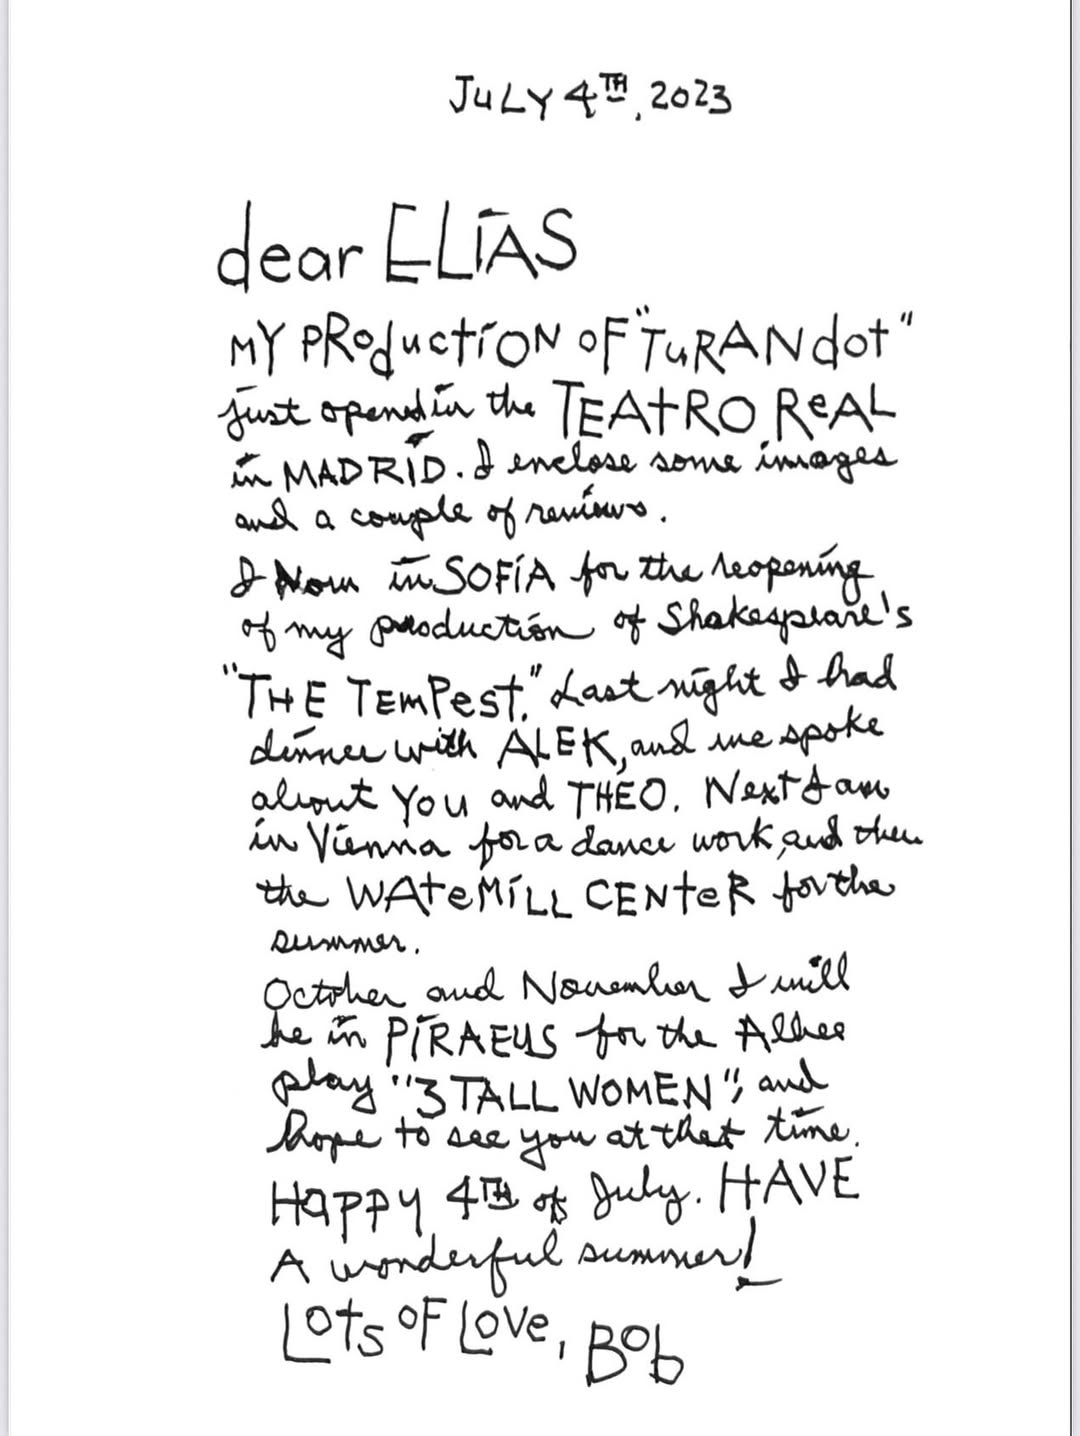 JULY 4TH, 2023
dear ELIAS
MY PRoductION OF "TuRANdot"
just opened in the TEAtRO ReAL
in MADRID. I enclose some images
and a couple of reviews.
I Now in SOFIA for the reopening
of my production of Shakespeare's
"THE TEMPest." Last night I had
dinner with ALEK, and we spoke
about YOU and THEO. Next I am
in Vienna for a dance work, and then
the WAteMILL CENteR for the
summer.
October and November I will
be in PIRAEUS for the Albee
play "3 TALL WOMEN", and
hope to see you at that time.
HAPPY 4TH of July. HAVE
A wonderful summer!
Lots OF Love, Bob